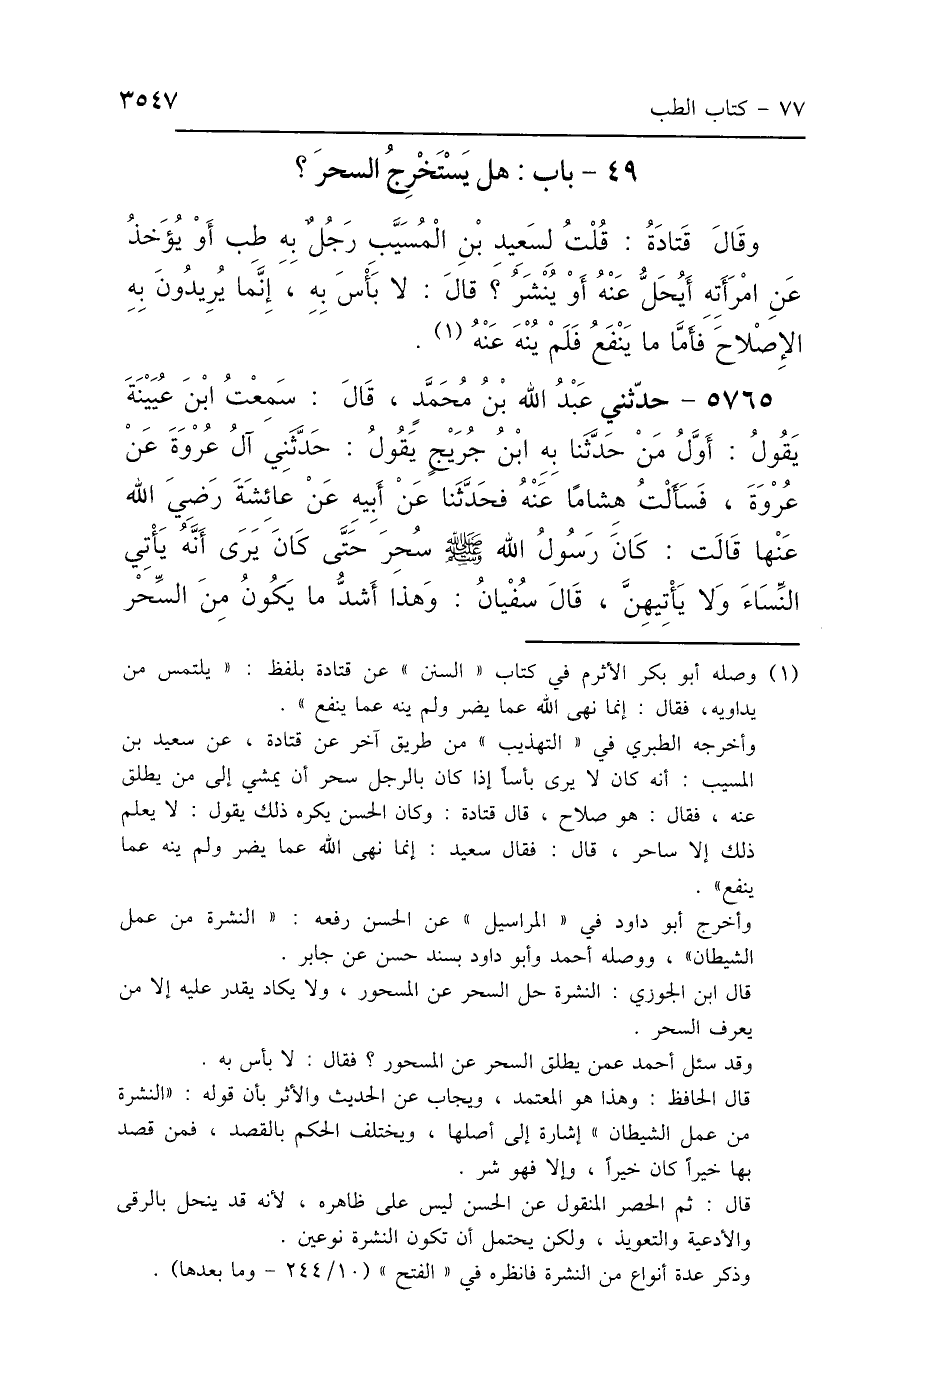 ٧٧ - كتاب الطب
٣٥٤٧
٤٩ - باب : هل يَسْتَخْرِجُ السحرَ ؟
وقَالَ قَتادَةُ : قُلْتُ لسَعِيدِ بْنِ الْمُسَيَّبِ رَجُلٌ بِهِ طِب أَوْ يُؤَخذُ
عَنِ امْرَأَتِهِ أَيُحَلُّ عَنْهُ أَوْ يُنْشَرُ ؟ قالَ : لا بَأْسَ بِهِ ، إِنَّما يُرِيدُونَ بِهِ
الإِصْلاحَ فأَمَّا ما يَنْفَعُ فَلَمْ يُنْهَ عَنْهُ (١) .
٥٧٦٥ - حدّثني عَبْدُ الله بْنُ مُحَمَّدٍ ، قَالَ : سَمِعْتُ ابْنَ عُيَيْنَةَ
يَقُولُ : أَوَّلُ مَنْ حَدَّثَنا بِهِ ابْنُ جُرَيْجٍ يَقُولُ : حَدَّثَنِي آلُ عُرْوَةَ عَنْ
عُرْوَةَ ، فَسَأَلْتُ هشامًا عَنْهُ فحَدَّثَنا عَنْ أَبِيهِ عَنْ عائشَةَ رَضِيَ الله
عَنْها قَالَت : كَانَ رَسُولُ الله ﷺ سُحِرَ حَتَّى كَانَ يَرَى أَنَّهُ يَأْتِي
النِّسَاءَ وَلا يَأْتِيهِنَّ ، قَالَ سُفْيانُ : وَهَذا أَشدُّ ما يَكُونُ مِنَ السِّحْرِ
(١) وصله أبو بكر الأثرم في كتاب « السنن » عن قتادة بلفظ : « يلتمس من
يداويه، فقال : إنما نهى الله عما يضر ولم ينه عما ينفع » .
وأخرجه الطبري في « التهذيب » من طريق آخر عن قتادة ، عن سعيد بن
المسيب : أنه كان لا يرى بأساً إذا كان بالرجل سحر أن يمشي إلى من يطلق
عنه ، فقال : هو صلاح ، قال قتادة : وكان الحسن يكره ذلك يقول : لا يعلم
ذلك إلا ساحر ، قال : فقال سعيد : إنما نهى الله عما يضر ولم ينه عما
ينفع» .
وأخرج أبو داود في « المراسيل » عن الحسن رفعه : « النشرة من عمل
الشيطان» ، ووصله أحمد وأبو داود بسند حسن عن جابر .
قال ابن الجوزي : النشرة حل السحر عن المسحور ، ولا يكاد يقدر عليه إلا من
يعرف السحر .
وقد سئل أحمد عمن يطلق السحر عن المسحور ؟ فقال : لا بأس به .
قال الحافظ : وهذا هو المعتمد ، ويجاب عن الحديث والأثر بأن قوله : «النشرة
من عمل الشيطان » إشارة إلى أصلها ، ويختلف الحكم بالقصد ، فمن قصد
بها خيراً كان خيراً ، وإلا فهو شر .
قال : ثم الحصر المنقول عن الحسن ليس على ظاهره ، لأنه قد ينحل بالرقى
والأدعية والتعويذ ، ولكن يحتمل أن تكون النشرة نوعين .
وذكر عدة أنواع من النشرة فانظره في « الفتح » (١٠/ ٢٤٤ - وما بعدها) .